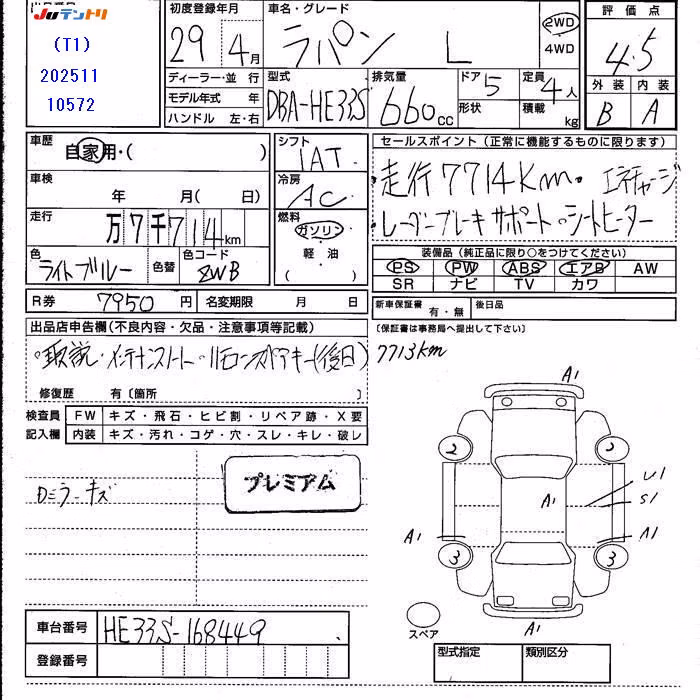 JUテントリ
(T1)
202511
10572
初度登録年月
29年 4月
車名・グレード
ラパン L
2WD
4WD
評価点
4.5
外装 内装
B A
ディーラー・並行
モデル年式 年
ハンドル 左・右
型式
DBA-HE33S
排気量
660cc
ドア 5
形状
定員 4人
積載 kg
車歴
自家用・( )
車検
年 月( 日)
走行
万7千714km
色
ライトブルー
色替
色コード
ZWB
シフト
IAT
冷房
AC
燃料
ガソリン
軽・油
( )
セールスポイント(正常に機能するものに限ります)
・走行7714Km・エネチャージ
・レーダーブレーキサポート・シートヒーター
装備品(純正品に限り○をつけてください)
PS PW ABS エアB AW
SR ナビ TV カワ
R券 7950円 名変期限 月 日
新車保証書 有・無 後日品
(保証書は事務局へ提出して下さい)
7713km
出品店申告欄(不良内容・欠品・注意事項等記載)
・取説・メンテナンスノート・リモコンスペアキー(後日)
修復歴 有〔箇所 〕
検査員記入欄
FW キズ・飛石・ヒビ割・リペア跡・X要
内装 キズ・汚れ・コゲ・穴・スレ・キレ・破レ
Dミラーキズ
プレミアム
A1
2 2
U1
A1 S1
A1 A1
3 3
スペア
A1
車台番号 HE33S-168449
登録番号
型式指定 類別区分